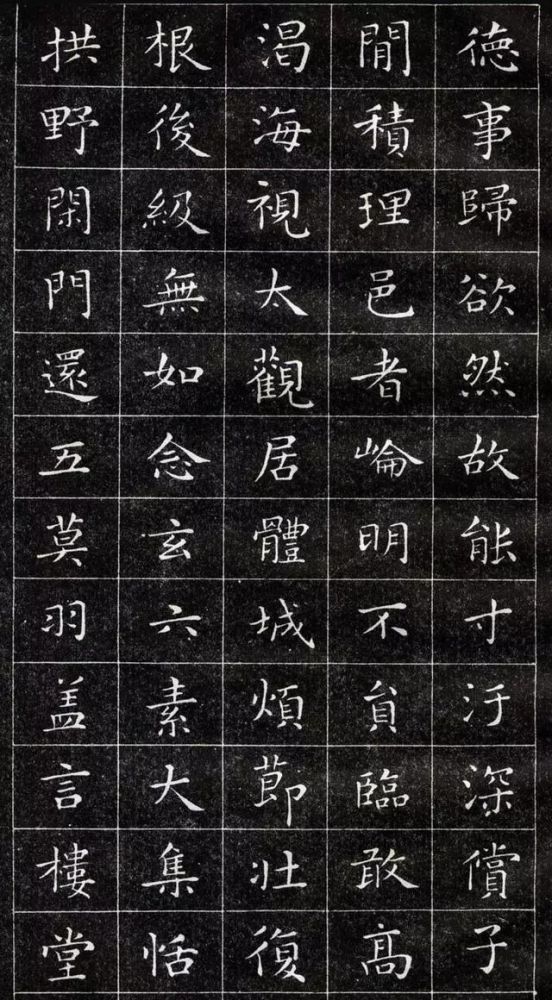 德事歸欲然故能寸汙深償子
閒積理邑者崘明不負臨敢高
渴海視太觀居體城煩莭壯復
根後級無如念玄六素大集恬
拱野閑門還五莫羽盖言樓堂